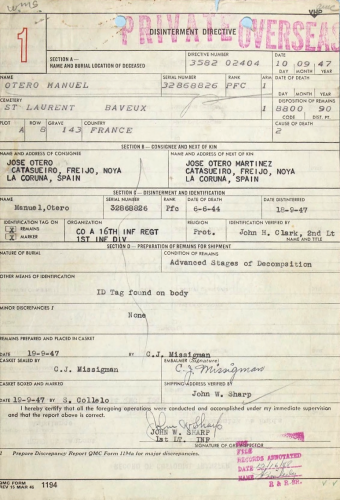 WMS
VHP
PRIVATE OVERSEAS
1
DISINTERMENT DIRECTIVE
SECTION A—
NAME AND BURIAL LOCATION OF DECEASED
DIRECTIVE NUMBER
3582 02404
DATE
10 09 47
DAY MONTH YEAR
NAME
OTERO MANUEL
SERIAL NUMBER
32868826
RANK
PFC
ARM
1
DATE OF DEATH
DAY MONTH YEAR
CEMETERY
ST LAURENT BAVEUX
1
DISPOSITION OF REMAINS
8800 90
CODE DIST. PT.
PLOT
A
ROW
8
GRAVE
143
COUNTRY
FRANCE
CAUSE OF DEATH
2
SECTION B – CONSIGNEE AND NEXT OF KIN
NAME AND ADDRESS OF CONSIGNEE
JOSE OTERO
CATASUEIRO, FREIJO, NOYA
LA CORUNA, SPAIN
NAME AND ADDRESS OF NEXT OF KIN
JOSE OTERO MARTINEZ
CATASUEIRO, FREIJO, NOYA
LA CORUNA, SPAIN
SECTION C – DISINTERMENT AND IDENTIFICATION
NAME
Manuel,Otero
SERIAL NUMBER
32868826
RANK
Pfc
DATE OF DEATH
6-6-44
DATE DISTINTERRED
18-9-47
IDENTIFICATION TAG ON
X REMAINS
X MARKER
ORGANIZATION
CO A 16TH INF REGT
1ST INF DIV
RELIGION
Prot.
IDENTIFICATION VERIFIED BY
John H. Clark, 2nd Lt
NAME AND TITLE
SECTION D – PREPARATION OF REMAINS FOR SHIPMENT
NATURE OF BURIAL
CONDITION OF REMAINS
Advanced Stages of Decompsition
OTHER MEANS OF IDENTIFICATION
ID Tag found on body
MINOR DISCREPANCIES
None
REMAINS PREPARED AND PLACED IN CASKET
DATE 19-9-47 BY C.J. Missigman
CASKET SEALED BY
C.J. Missigman
EMBALMER (Signature)
C.J. Missigman
CASKET BOXED AND MARKED
DATE 19-9-47 BY S. Collelo
SHIPPING ADDRESS VERIFIED BY
John W. Sharp
I hereby certify that all the foregoing operations were conducted and accomplished under my immediate supervision
and that the report above is correct.
John W Sharp
JOHN W. SHARP
1st LT. INF
SIGNATURE OF
Prepare Discrepancy Report QMC Form 1194a for major discrepancies.
FILE
RECORDS ANNOTATED
DATE
NAME
R & R BR.
QMC FORM
REV 15 MAR 46 1194